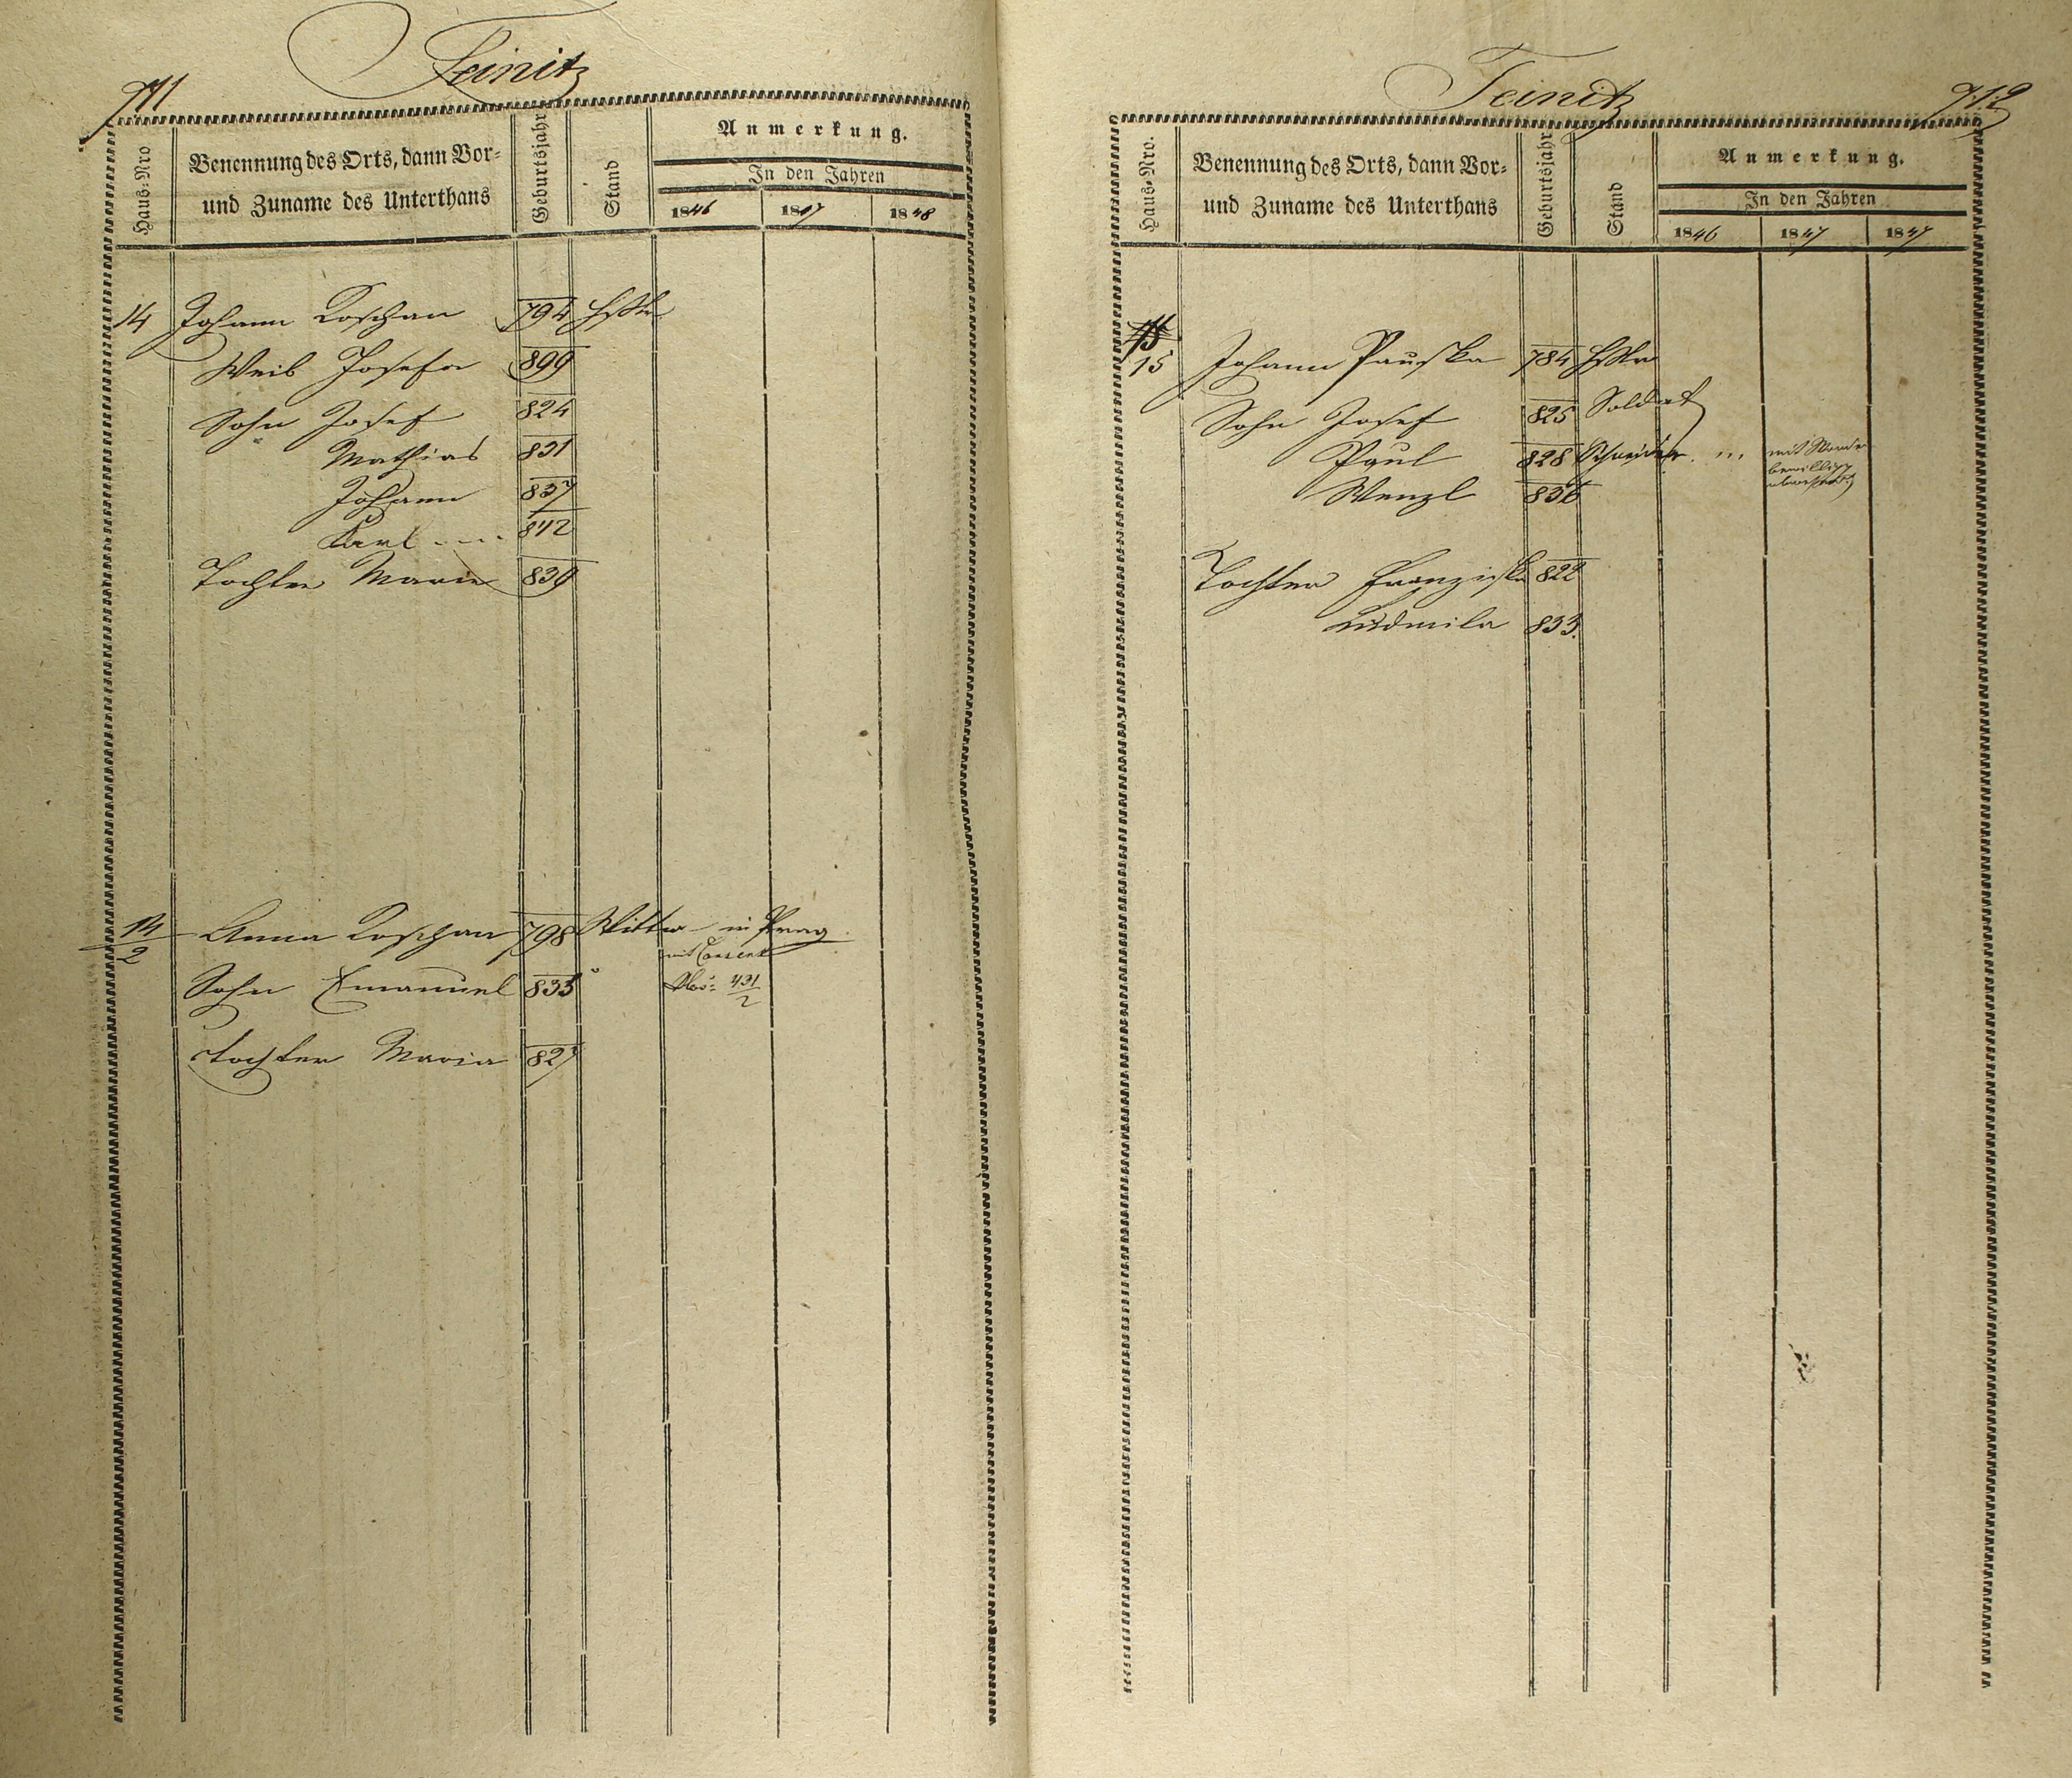 711
Teinitz
Haus-Nro
Benennung des Orts, dann Vor-
und Zuname des Unterthans
Geburtsjahr
Stand
Anmerkung.
In den Jahren
1846 1847 1848
14 Johann Koschan 794
Weib Josefa 899
Sohn Josef 824
Mathias 831
Johann 837
Karl 842
Tochter Marie 839
14/2 Anna Koschan 798 Wittw in Prag
mit Consens
Sohn Emanuel 835 431/2
Tochter Maria 827
Teinitz
712
Haus-Nro.
Benennung des Orts, dann Vor-
und Zuname des Unterthans
Geburtsjahr
Stand
Anmerkung.
In den Jahren
1846 1847 1847
15
15 Johann Pauska 784
Sohn Josef 825 Soldat
Paul 828 Schneider ... mit Wander
bewilligg
Wenzl 836
Tochter Franziska 822
Ludmila 833.